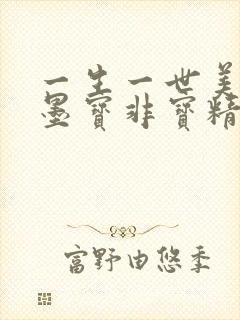 一生一世美
墨寶非寶精
富野由悠季